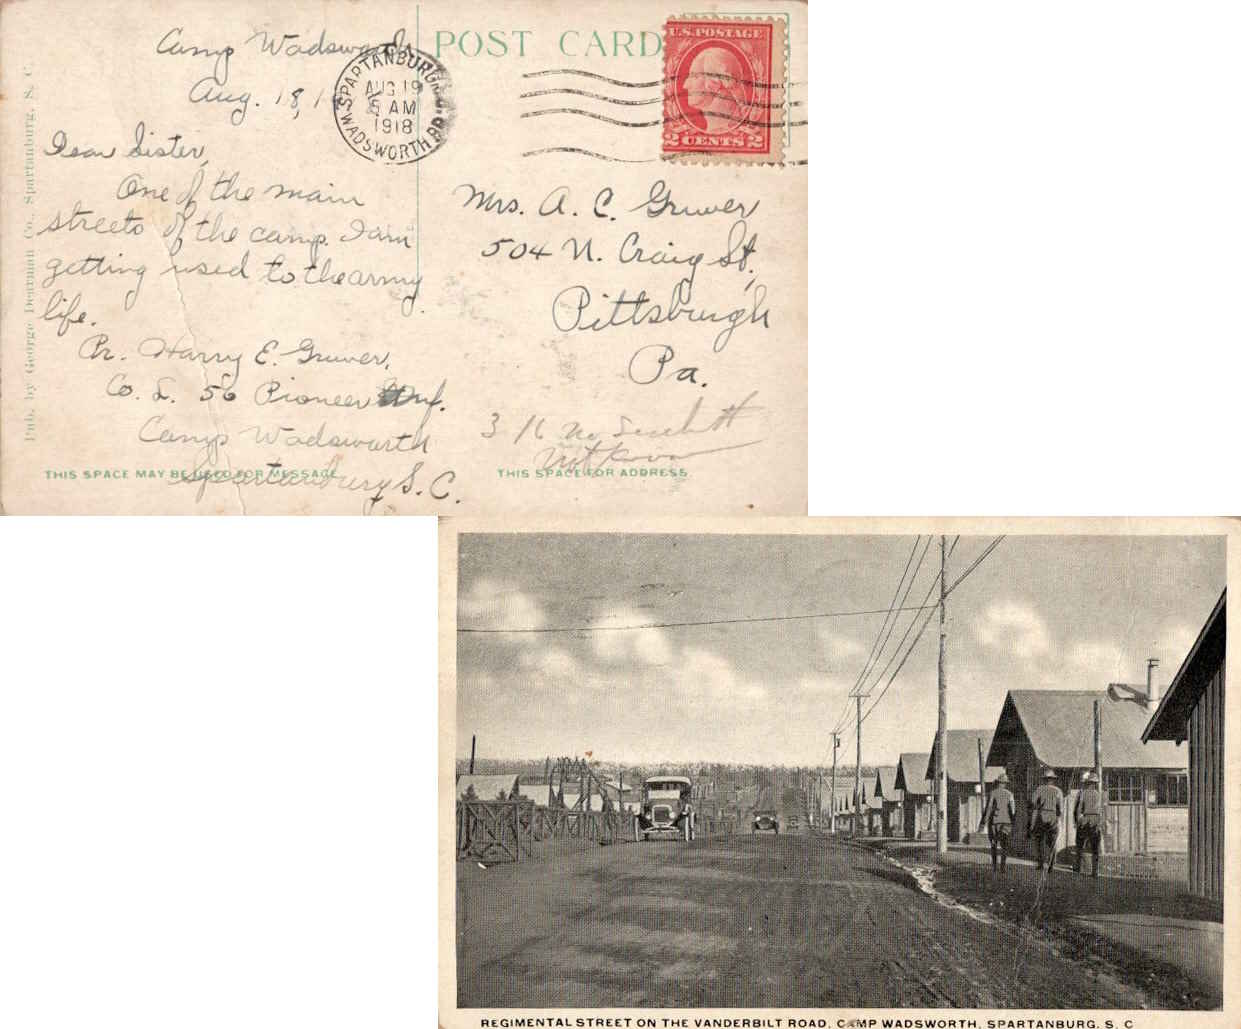 Camp Wadsworth
Aug. 18, 1
POST CARD
SPARTANBURG, S.C.
AUG 19
5 AM
1918
WADSWORTH BR.
U.S. POSTAGE
2 CENTS 2
Pub. by George Dearman Co., Spartanburg, S. C.
Dear Sister,
One of the main
streets of the camp. I am
getting used to the army
life.
Pr. Harry E. Gruver,
Co. L. 56 Pioneer Inf.
Camp Wadsworth
Spartanburg S. C.
THIS SPACE MAY BE USED FOR MESSAGE
Mrs. A. C. Gruver
504 N. Craig St,
Pittsburgh
Pa.
3 16 No
Not
THIS SPACE FOR ADDRESS
REGIMENTAL STREET ON THE VANDERBILT ROAD, CAMP WADSWORTH, SPARTANBURG, S. C